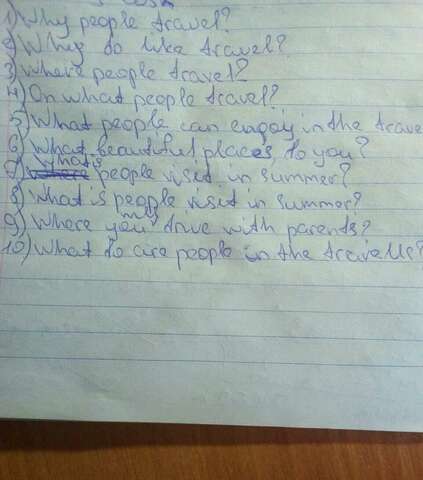 1) Why people travel?
2) Why do like travel?
3) Where people travel?
4) On what people travel?
5) What people can engoy in the trave
6) What beautiful places to you?
7) What's people visit in summer?
8) What is people visit in summer?
9) Where you my drive with parents?
10) What to are people in the travells?